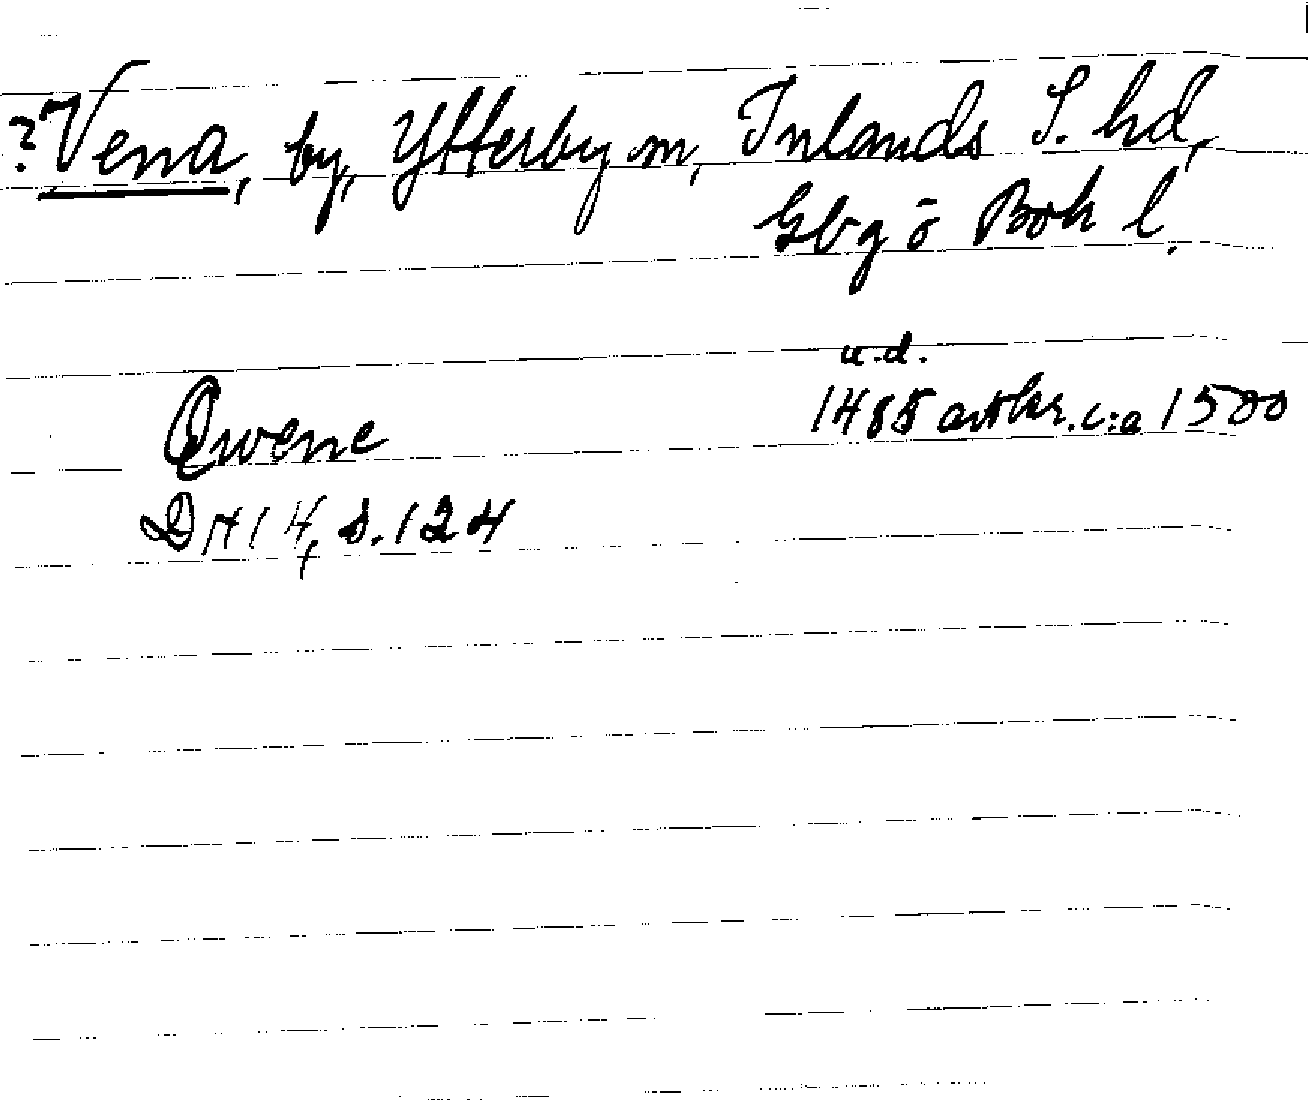 ?Vena, by, Ytterby sn, Inlands S. hd,
Gbg o Boh l.
u.d.
Qwene 1485 avskr. c:a 1500
DN 14, s. 124